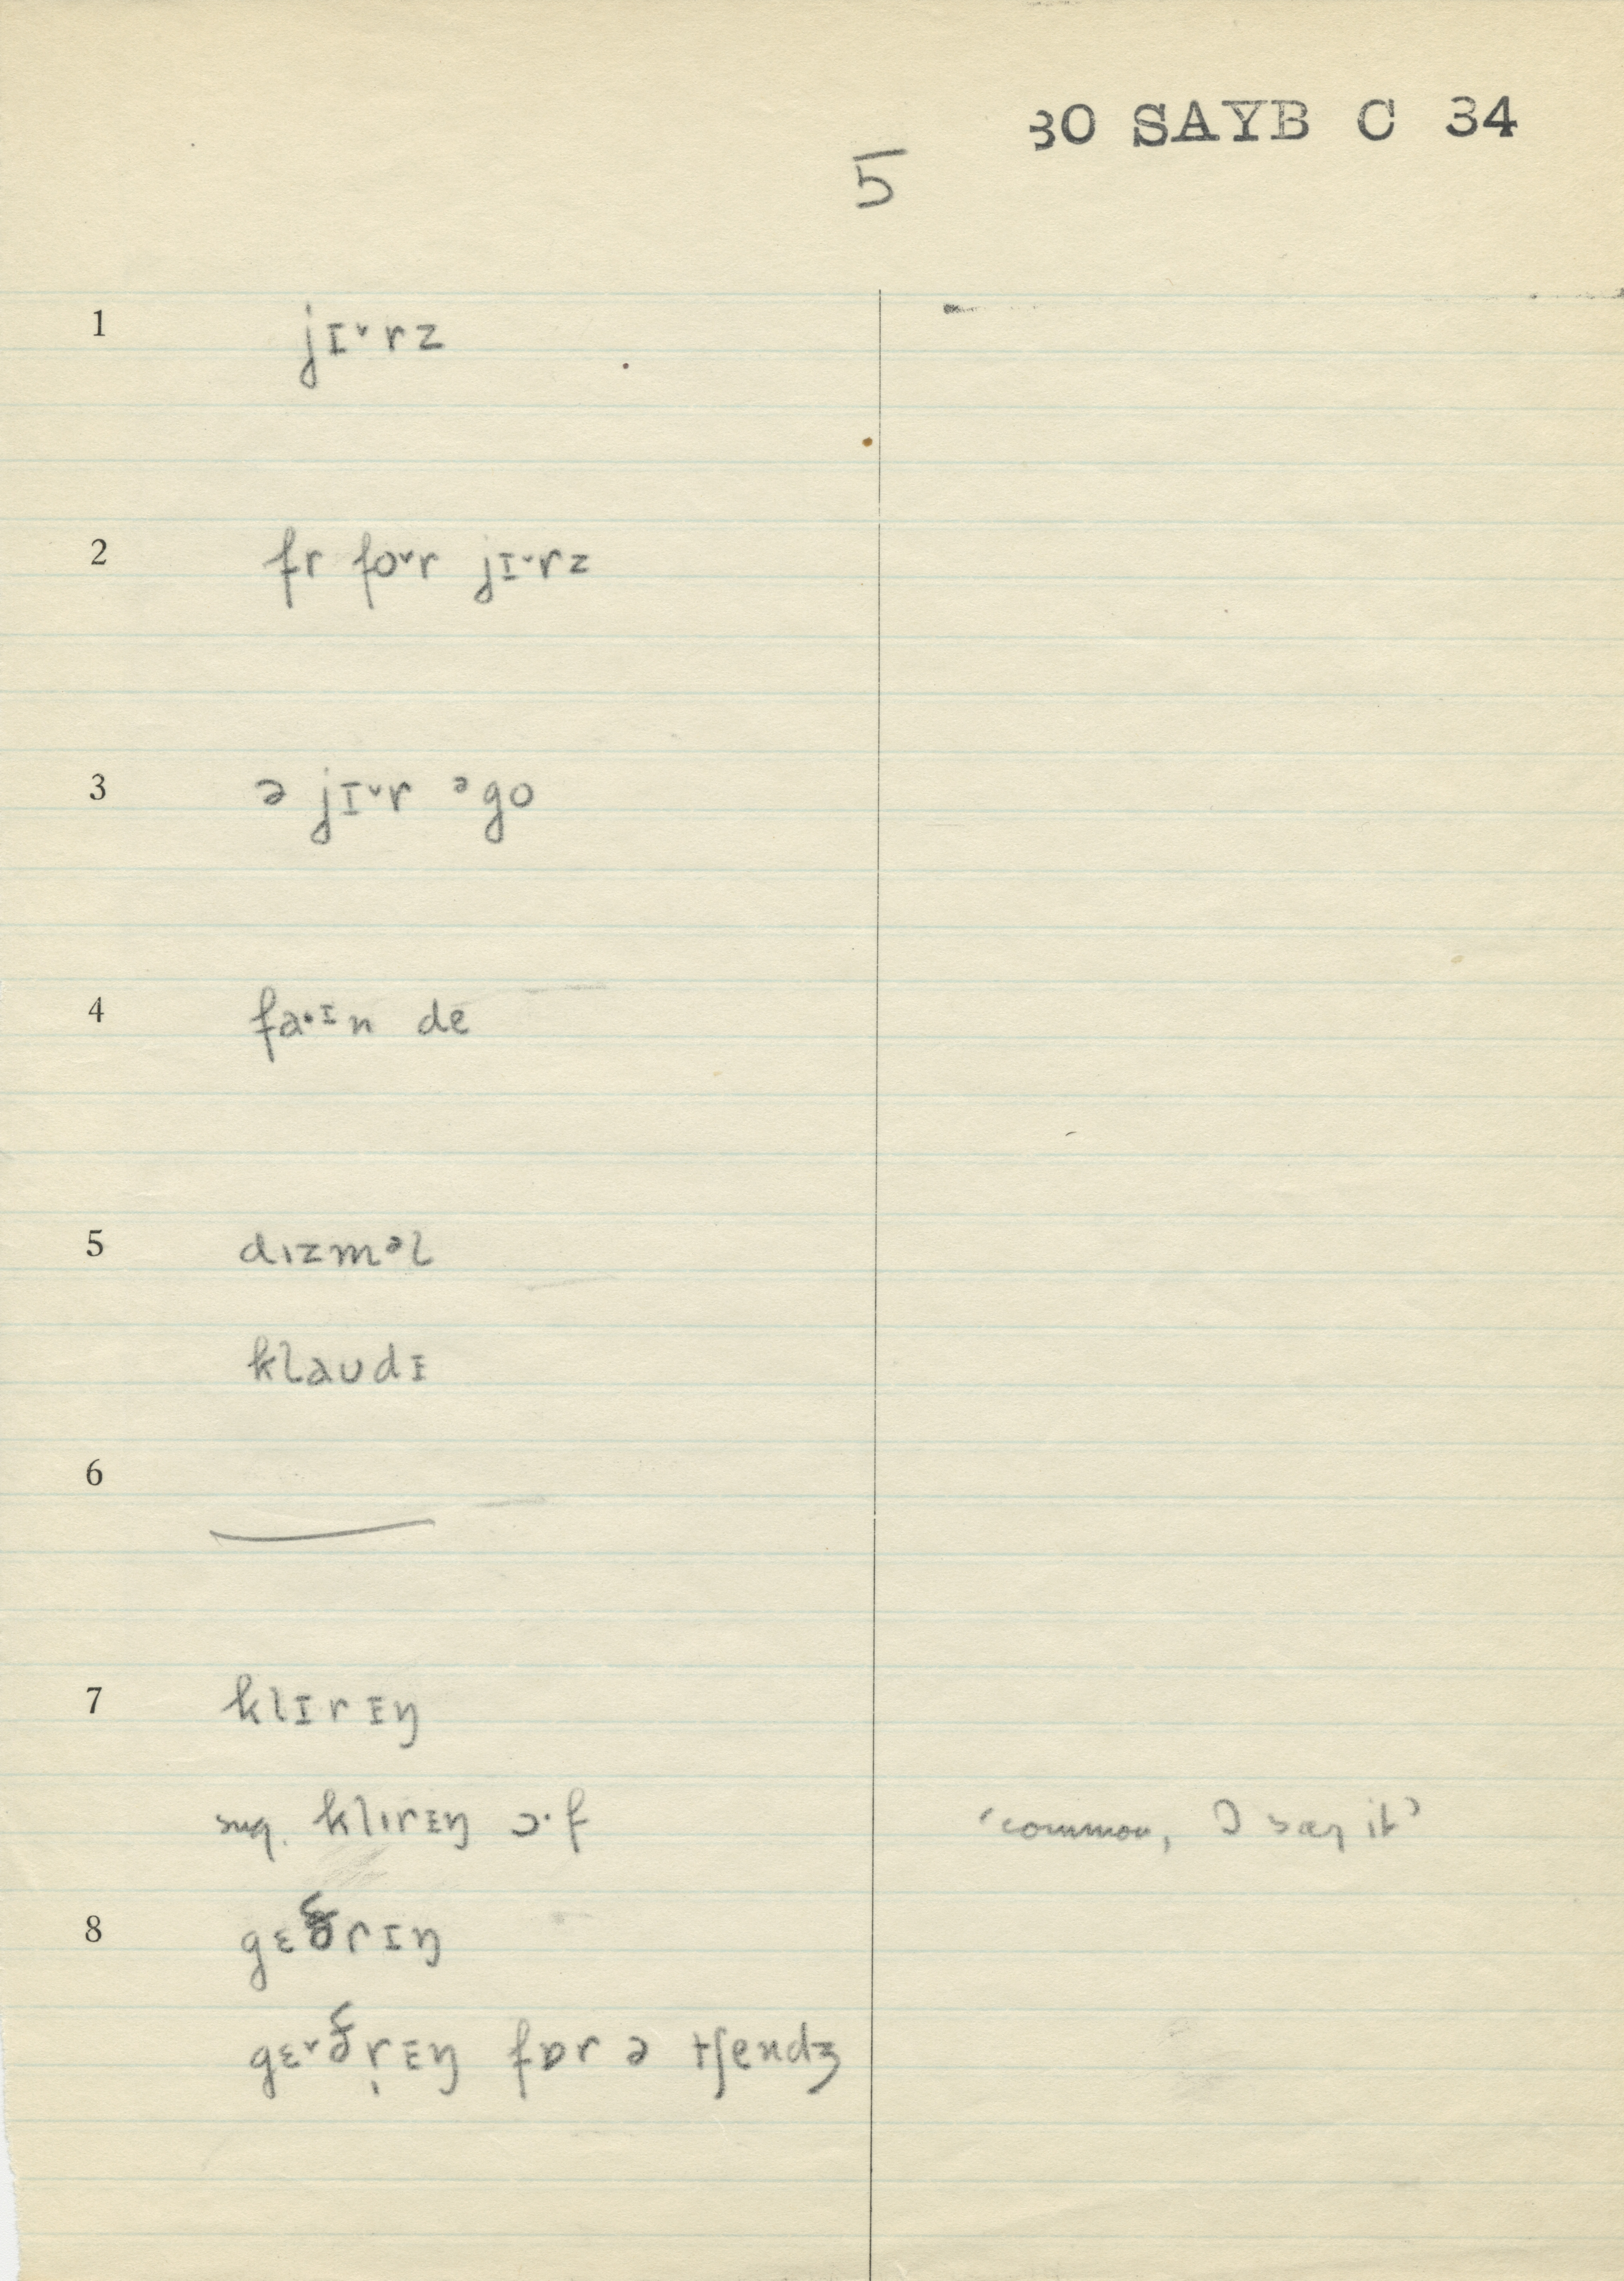 30 SAYB C 34
5
1 jɪ˅rz
2 fr fo˅r jɪ˅rz
3 ə jɪ˅r ᵊgo
4 fa·ᶦn de
5 dɪzmᵊl
klaudɪ
6
7 klɪrɪŋ
sug. klɪrɪŋ ɔ·f ‘common, I say it’
8 gɛðrɪŋ
gɛ˅ðr̩ɪŋ fɒr ə tʃendʒ